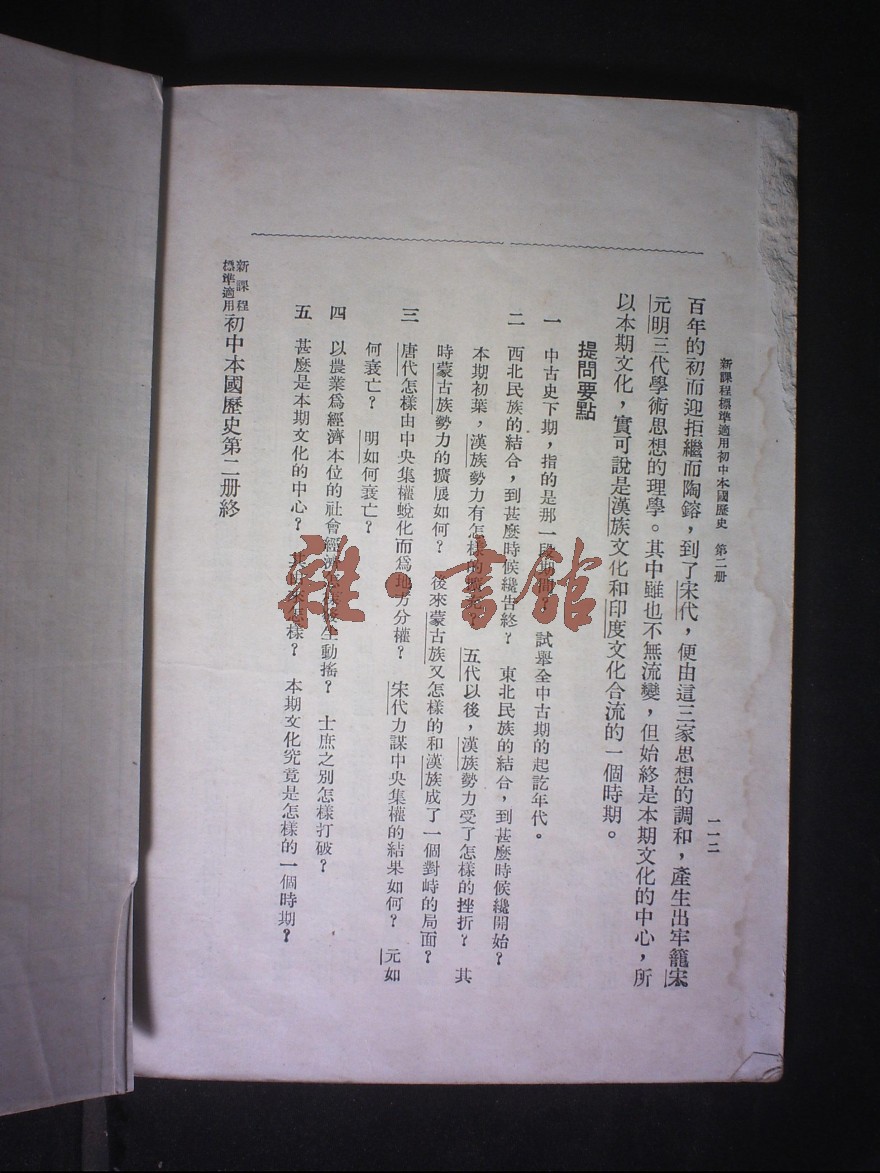 新課程標準適用初中本國歷史　第二册
一一二
百年的初而迎拒繼而陶鎔，到了宋代，便由這三家思想的調和，產生出牢籠宋
元明三代學術思想的理學。其中雖也不無流變，但始終是本期文化的中心，所
以本期文化，實可說是漢族文化和印度文化合流的一個時期。
提問要點
一　中古史下期，指的是那一段期間？　試舉全中古期的起訖年代。
二　西北民族的結合，到甚麼時候纔告終？　東北民族的結合，到甚麼時候纔開始？
本期初葉，漢族勢力有怎樣的　？　五代以後，漢族勢力受了怎樣的挫折？　其
時蒙古族勢力的擴展如何？　後來蒙古族又怎樣的和漢族成了一個對峙的局面？
三　唐代怎樣由中央集權蛻化而爲地方分權？　宋代力謀中央集權的結果如何？　元如
何衰亡？　明如何衰亡？
四　以農業爲經濟本位的社會經濟怎樣發生動搖？　士庶之別怎樣打破？
五　甚麼是本期文化的中心？　其　怎樣？　本期文化究竟是怎樣的一個時期？
新課程標準適用初中本國歷史第二册終
雜·書館